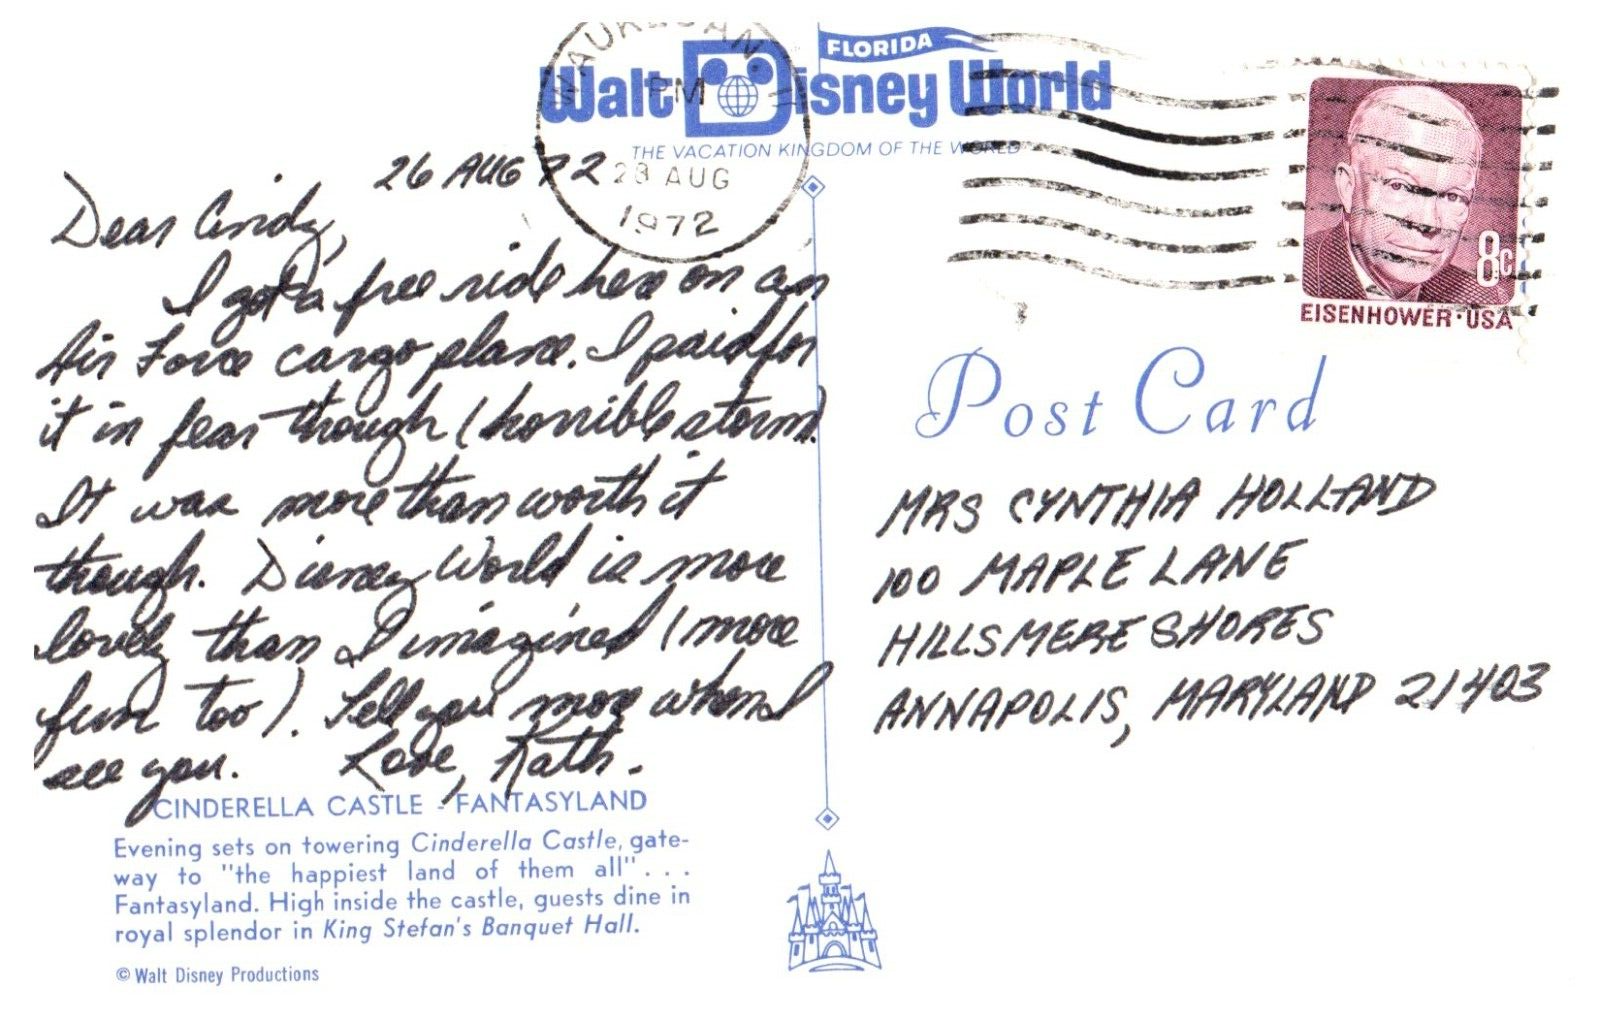 WAUKEGAN
PM
28 AUG
1972
FLORIDA
Walt Disney World
THE VACATION KINGDOM OF THE WORLD
8c
EISENHOWER·USA
26 AUG 72
Dear Cindy,
I got a free ride here on an
Air Force cargo plane. I paid for
it in fear though (horrible storm)
It was more than worth it
though. Disney World is more
lovely than I imagined (more
fun too). Tell you more when I
see you. Love, Kath.
CINDERELLA CASTLE - FANTASYLAND
Evening sets on towering Cinderella Castle, gate-
way to "the happiest land of them all" . . .
Fantasyland. High inside the castle, guests dine in
royal splendor in King Stefan's Banquet Hall.
© Walt Disney Productions
Post Card
MRS CYNTHIA HOLLAND
100 MAPLE LANE
HILLSMERE SHORES
ANNAPOLIS, MARYLAND 21403